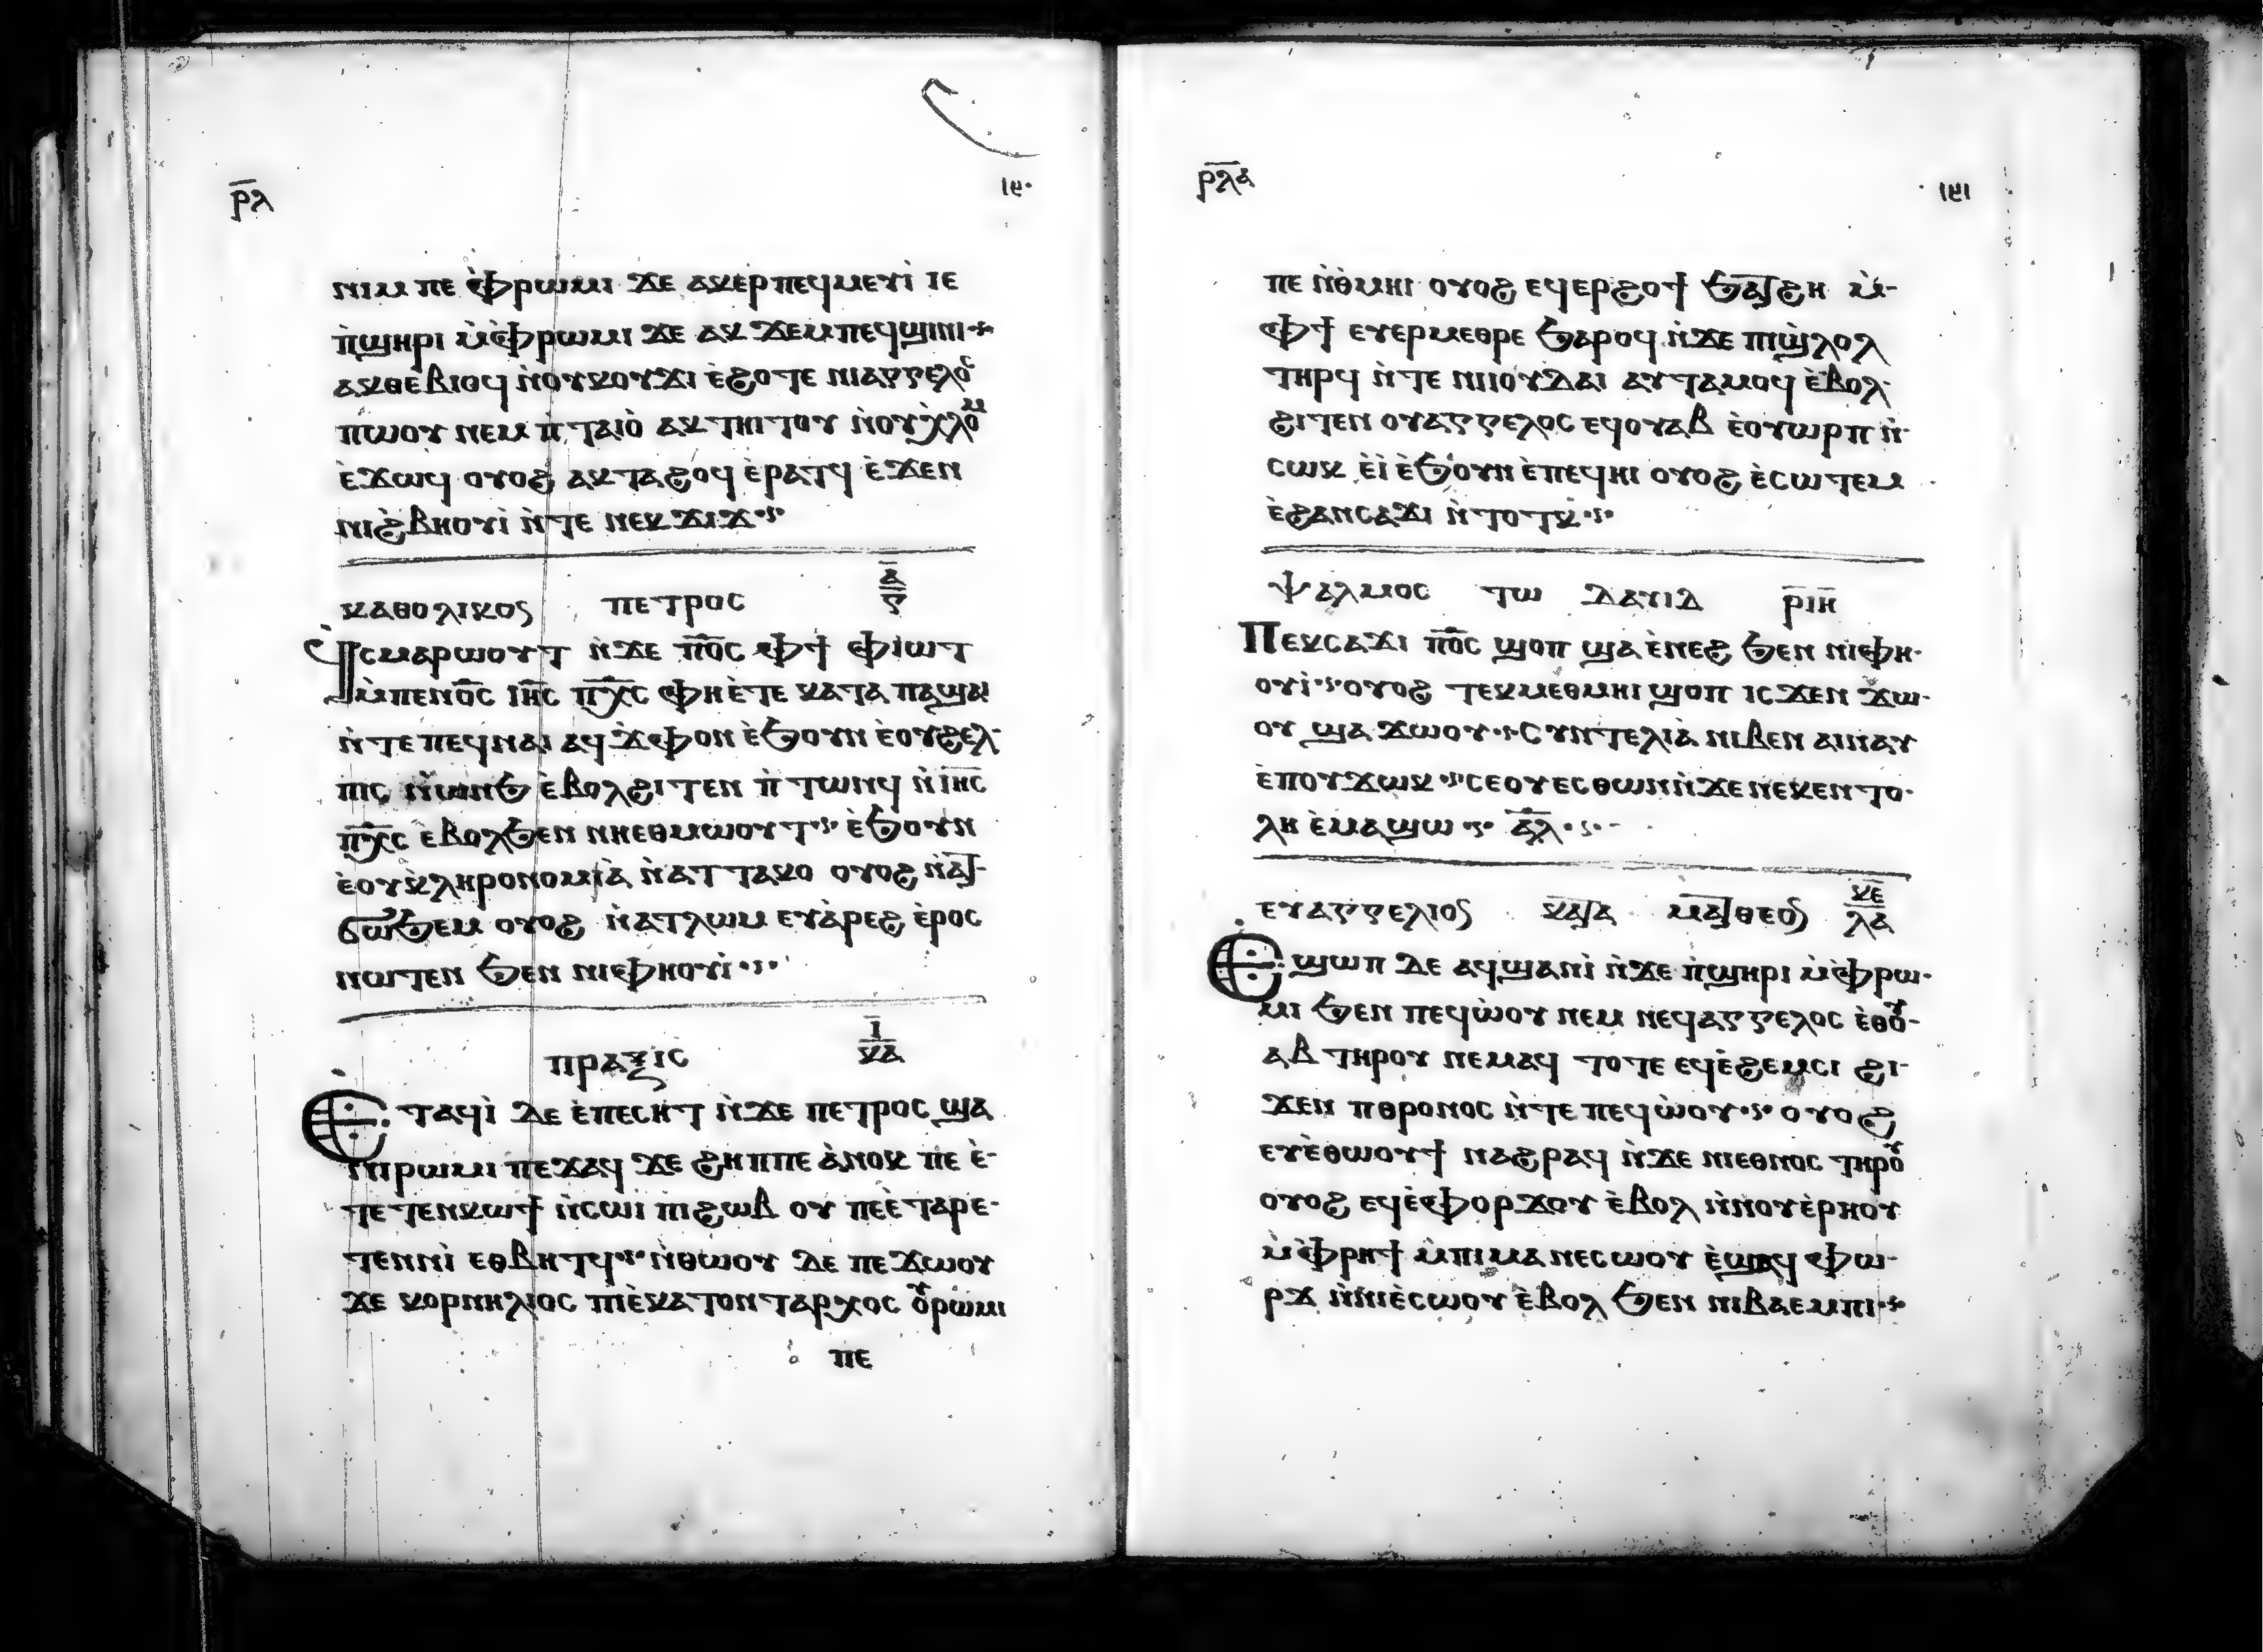 ⲣ̅ⲗ̅
١٩٠
ⲛⲓⲙ ⲡⲉ ⲫ̀ⲣⲱⲙⲓ ϫⲉ ⲁⲕⲉⲣⲡⲉϥⲙⲉⲩⲓ̀ ⲓⲉ
ⲡ̀ϣⲏⲣⲓ ⲙ̀ⲫ̀ⲣⲱⲙⲓ ϫⲉ ⲁⲕ ϫⲉⲙⲡⲉϥϣⲓⲛⲓ
ⲁⲕⲑⲉⲃⲓⲟϥ ⲛ̀ⲟⲩⲕⲟⲩϫⲓ ⲉ̀ϩⲟⲧⲉ ⲛⲓⲁⲅⲅⲉⲗⲟⲥ
ⲡⲱⲟⲩ ⲛⲉⲙ ⲡ̀ⲧⲁⲓⲟ̀ ⲁⲕⲧⲏⲓⲧⲟⲩ ⲛ̀ⲟⲩⲭ̀ⲗⲟⲙ
ⲉ̀ϫⲱϥ ⲟⲩⲟϩ ⲁⲕⲧⲁϩⲟϥ ⲉ̀ⲣⲁⲧϥ ⲉ̀ϫⲉⲛ
ⲛⲓϩ̀ⲃⲏⲟⲩⲓ̀ ⲛ̀ⲧⲉ ⲛⲉⲕϫⲓϫ
ⲕⲁⲑⲟⲗⲓⲕⲟⲥ ⲡⲉⲧⲣⲟⲥ ⲁ̅ ⲅ
ϥ̀ⲥⲙⲁⲣⲱⲟⲩⲧ ⲛ̀ϫⲉ ⲡ̅ⲟ̅ⲥ̅ ⲫϯ ⲫ̀ⲓⲱⲧ
ⲙ̀ⲡⲉⲛⲟ̅ⲥ̅ ⲓⲏ̅ⲥ̅ ⲡⲭ̅ⲥ̅ ⲫⲏⲉ̀ⲧⲉ ⲕⲁⲧⲁ ⲡⲁϣⲁⲓ
ⲛ̀ⲧⲉ ⲡⲉϥⲛⲁⲓ ⲁϥϫⲫⲟⲛ ⲉ̀ϧⲟⲩⲛ ⲉ̀ⲟⲩϩⲉⲗ-
ⲡⲓⲥ ⲛ̀ⲱⲛϧ ⲉ̀ⲃⲟⲗϩⲓⲧⲉⲛ ⲡ̀ⲧⲱⲛϥ ⲛ̀ⲓⲏ̅ⲥ̅
ⲡⲭ̅ⲥ̅ ⲉ̀ⲃⲟⲗϧⲉⲛ ⲛⲏⲉⲑⲙⲱⲟⲩⲧ ⲉ̀ϧⲟⲩⲛ
ⲉ̀ⲟⲩⲕ̀ⲗⲏⲣⲟⲛⲟⲙⲓⲁ̀ ⲛ̀ⲁⲧⲧⲁⲕⲟ ⲟⲩⲟϩ ⲛ̀ⲁⲧ-
ϭⲱϧⲉⲙ ⲟⲩⲟϩ ⲛ̀ⲁⲧⲗⲱⲙ ⲉⲩⲁ̀ⲣⲉϩ ⲉ̀ⲣⲟⲥ
ⲛⲱⲧⲉⲛ ϧⲉⲛ ⲛⲓⲫⲏⲟⲩⲓ̀
ⲡⲣⲁⲝⲓⲥ ⲓ̅ ⲕⲁ
ⲉⲧⲁϥⲓ̀ ⲇⲉ ⲉ̀ⲡⲉⲥⲏⲧ ⲛ̀ϫⲉ ⲡⲉⲧⲣⲟⲥ ϣⲁ
ⲛⲓⲣⲱⲙⲓ ⲡⲉϫⲁϥ ϫⲉ ϩⲏⲡⲡⲉ ⲁ̀ⲛⲟⲕ ⲡⲉ ⲉ̀-
ⲧⲉⲧⲉⲛⲕⲱϯ ⲛ̀ⲥⲱⲓ ⲡⲓϩⲱⲃ ⲟⲩ ⲡⲉⲉ̀ⲧⲁⲣⲉ-
ⲧⲉⲛⲛⲓ̀ ⲉⲑⲃⲏⲧϥ ⲛ̀ⲑⲱⲟⲩ ⲇⲉ ⲡⲉϫⲱⲟⲩ
ϫⲉ ⲕⲟⲣⲛⲏⲗⲓⲟⲥ ⲡⲓⲉ̀ⲕⲁⲧⲟⲛⲧⲁⲣⲭⲟⲥ ⲟⲩⲣⲱⲙⲓ
ⲡⲉ
ⲣ̅ⲗ̅ⲁ̅
١٩١
ⲡⲉ ⲛ̀ⲑⲙⲏⲓ ⲟⲩⲟϩ ⲉϥⲉⲣϩⲟϯ ϧⲁⲧϩⲏ ⲙ̀-
ⲫϯ ⲉⲩⲉⲣⲙⲉⲑⲣⲉ ϧⲁⲣⲟϥ ⲛ̀ϫⲉ ⲡⲓϣ̀ⲗⲟⲗ
ⲧⲏⲣϥ ⲛ̀ⲧⲉ ⲛⲓⲓⲟⲩⲇⲁⲓ ⲁⲩⲧⲁⲙⲟϥ ⲉ̀ⲃⲟⲗ
ϩⲓⲧⲉⲛ ⲟⲩⲁⲅⲅⲉⲗⲟⲥ ⲉϥⲟⲩⲁⲃ ⲉ̀ⲟⲩⲱⲣⲡ ⲛ̀-
ⲥⲱⲕ ⲉ̀ⲓ̀ ⲉ̀ϧⲟⲩⲛ ⲉ̀ⲡⲉϥⲏⲓ ⲟⲩⲟϩ ⲉ̀ⲥⲱⲧⲉⲙ
ⲉ̀ϩⲁⲛⲥⲁϫⲓ ⲛ̀ⲧⲟⲧⲕ
ⲯⲁⲗⲙⲟⲥ ⲧⲱ ⲇⲁⲩⲓⲇ ⲣ̅ⲓⲏ̅
ⲡⲉⲕⲥⲁϫⲓ ⲡ̅ⲟ̅ⲥ̅ ϣⲟⲡ ϣⲁ ⲉ̀ⲛⲉϩ ϧⲉⲛ ⲛⲓⲫⲏ-
ⲟⲩⲓ̀ ⲟⲩⲟϩ ⲧⲉⲕⲙⲉⲑⲙⲏⲓ ϣⲟⲡ ⲓⲥϫⲉⲛ ϫⲱ-
ⲟⲩ ϣⲁ ϫⲱⲟⲩ ⲥⲩⲛⲧⲉⲗⲓⲁ̀ ⲛⲓⲃⲉⲛ ⲁⲓⲛⲁⲩ
ⲉ̀ⲡⲟⲩϫⲱⲕ ⲥⲉⲟⲩⲉⲥⲑⲱⲛ ⲛ̀ϫⲉ ⲛⲉⲕⲉⲛⲧⲟ-
ⲗⲏ ⲉ̀ⲙⲁϣⲱ ⲁ̅ⲗ̅
ⲉⲩⲁⲅⲅⲉⲗⲓⲟⲥ ⲕⲁⲧⲁ ⲙⲁⲧⲑⲉⲟⲥ ⲕⲉ ⲗⲁ
ⲉϣⲱⲡ ⲇⲉ ⲁϥϣⲁⲛⲓ̀ ⲛ̀ϫⲉ ⲡ̀ϣⲏⲣⲓ ⲙ̀ⲫ̀ⲣⲱ-
ⲙⲓ ϧⲉⲛ ⲡⲉϥⲱ̀ⲟⲩ ⲛⲉⲙ ⲛⲉϥⲁⲅⲅⲉⲗⲟⲥ ⲉ̀ⲑⲟⲩ-
ⲁⲃ ⲧⲏⲣⲟⲩ ⲛⲉⲙⲁϥ ⲧⲟⲧⲉ ⲉϥⲉ̀ϩⲉⲙⲥⲓ ϩⲓ-
ϫⲉⲛ ⲡⲑⲣⲟⲛⲟⲥ ⲛ̀ⲧⲉ ⲡⲉϥⲱ̀ⲟⲩ ⲟⲩⲟϩ
ⲉⲩⲉ̀ⲑⲱⲟⲩϯ ⲛⲁϩⲣⲁϥ ⲛ̀ϫⲉ ⲛⲓⲉⲑⲛⲟⲥ ⲧⲏⲣⲟⲩ
ⲟⲩⲟϩ ⲉϥⲉ̀ⲫⲟⲣϫⲟⲩ ⲉ̀ⲃⲟⲗ ⲛ̀ⲛⲟⲩⲉ̀ⲣⲏⲟⲩ
ⲙ̀ⲫ̀ⲣⲏϯ ⲙ̀ⲡⲓⲙⲁⲛⲉⲥⲱⲟⲩ ⲫⲱ-
ⲣϫ ⲛ̀ⲛⲓⲉ̀ⲥⲱⲟⲩ ⲉ̀ⲃⲟⲗ ϧⲉⲛ ⲛⲓⲃⲁⲉⲙⲡⲓ